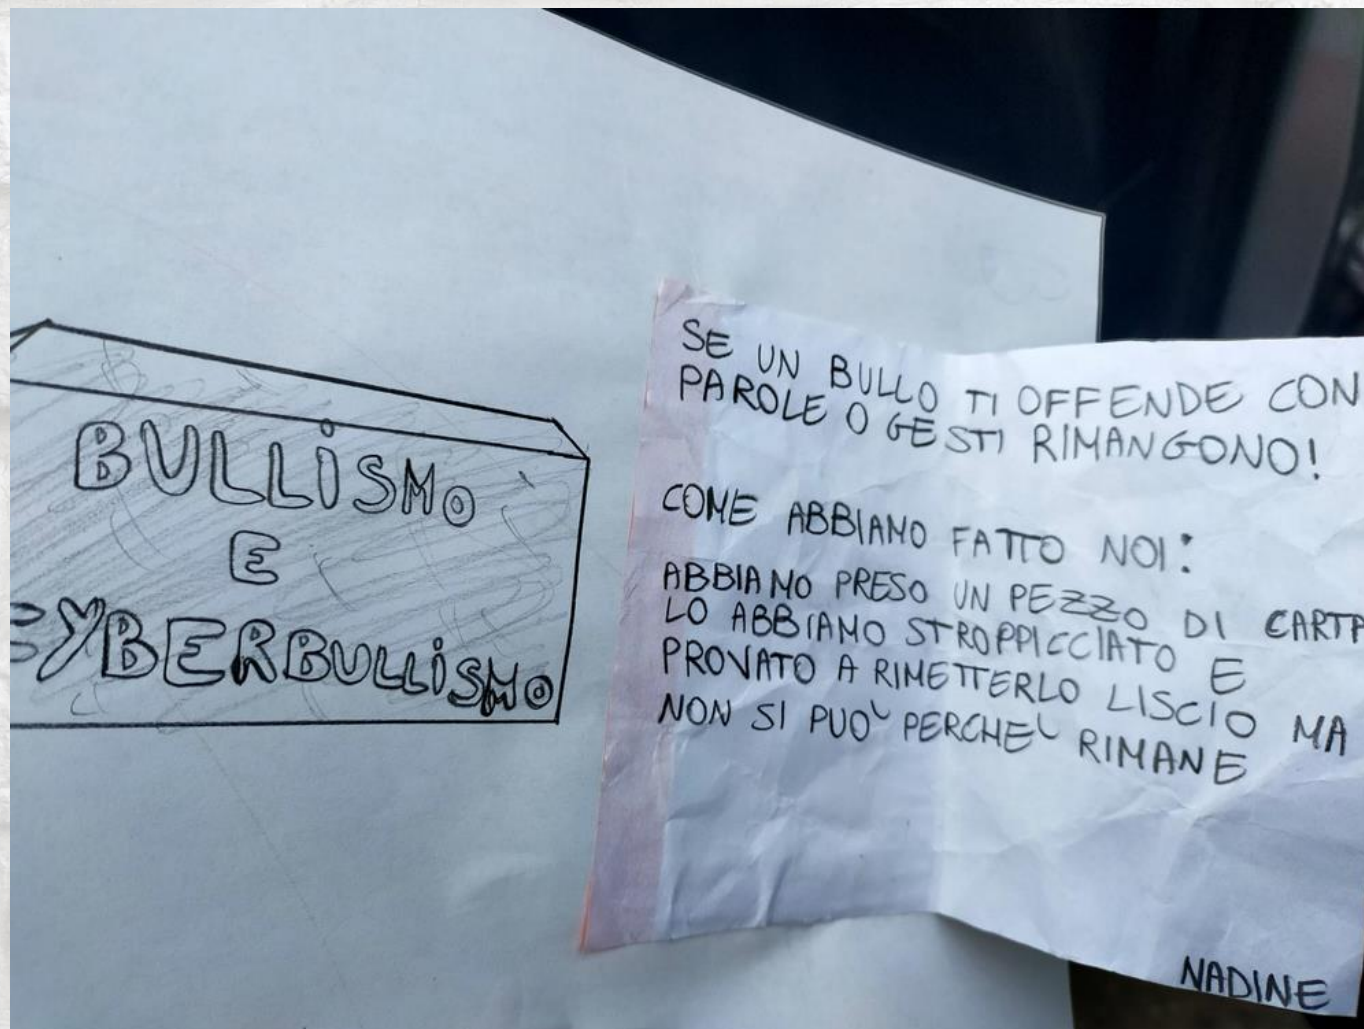 BULLISMO
E
CYBERBULLISMO
SE UN BULLO TI OFFENDE CON
PAROLE O GESTI RIMANGONO!
COME ABBIAMO FATTO NOI:
ABBIAMO PRESO UN PEZZO DI CARTA
LO ABBIAMO STROPPICCIATO E
PROVATO A RIMETTERLO LISCIO MA
NON SI PUO' PERCHE' RIMANE
NADINE